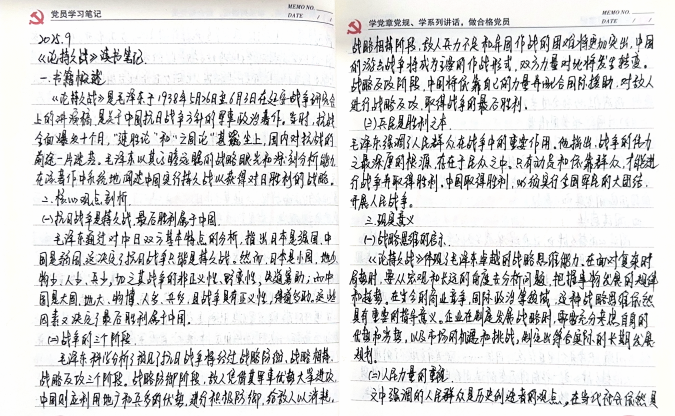 党员学习笔记
MEMO NO.
DATE / /
2025.9
《论持久战》读书笔记
一.书籍概述
《论持久战》是毛泽东于1938年5月26日至6月3日在延安战争研究会
上的讲演稿,是关于中国抗日战争方针的军事政治著作。当时,抗战
全面爆发十个月,"速胜论"和"亡国论"甚嚣尘上,国内对抗战的
前途一片迷茫。毛泽东以其高瞻远瞩的战略眼光和深刻分析能力
在该著作中系统地阐述中国实行持久战以获得对日胜利的战略。
二.核心观点剖析
(一)抗日战争是持久战,最后胜利属于中国
毛泽东通过对中日双方基本特点的分析,指出日本是强国,中
国是弱国,这决定了抗日战争只能是持久战。然而,日本是小国,地小
物少、人少、兵少,加之其战争的非正义性、野蛮性,失道寡助;而中
国是大国,地大、物博、人多、兵多,且战争具有正义性,得道多助,这些
因素又决定了最后胜利属于中国。
(二)战争的三个阶段
毛泽东科学分析了预见了抗日战争将经过战略防御、战略相持、
战略反攻三个阶段。战略防御阶段,敌人凭借其军事优势大举进攻
中国则应利用地广和兵多的优势,进行积极防御,给敌人以消耗。
学党章党规、学系列讲话,做合格党员
MEMO NO.
DATE / /
战略相持阶段,敌人兵力不足和异国作战的困难将更加突出,中国
的游击战争将成为主要的作战形式,双方力量对比将发生转变。
战略反攻阶段,中国将依靠自己的力量并配合国际援助,对敌人
进行战略反攻,取得战争的最后胜利。
(三)兵民是胜利之本
毛泽东强调人民群众在战争中的重要作用。他指出,战争的伟力
之最深厚的根源,存在于民众之中。只有动员和依靠群众,才能进
行战争并取得胜利。中国取得胜利,必须实行全国军民的大团结,
开展人民战争。
三.现实意义
(一)战略思维的启示
《论持久战》体现了毛泽东卓越的战略思维能力。在面对复杂时
局势时,要从宏观和长远的角度去分析问题,把握事物发展的规律
和趋势。在当今的商业竞争、国际政治等领域,这种战略思维依然
具有重要的指导意义。企业在制定发展战略时,需要充分考虑自身的
优势和劣势,以及市场的机遇和挑战,制定出符合实际的长期发展
规划。
(二)人民力量的重视
文中强调的人民群众是历史创造者的观点,在当代社会依然具